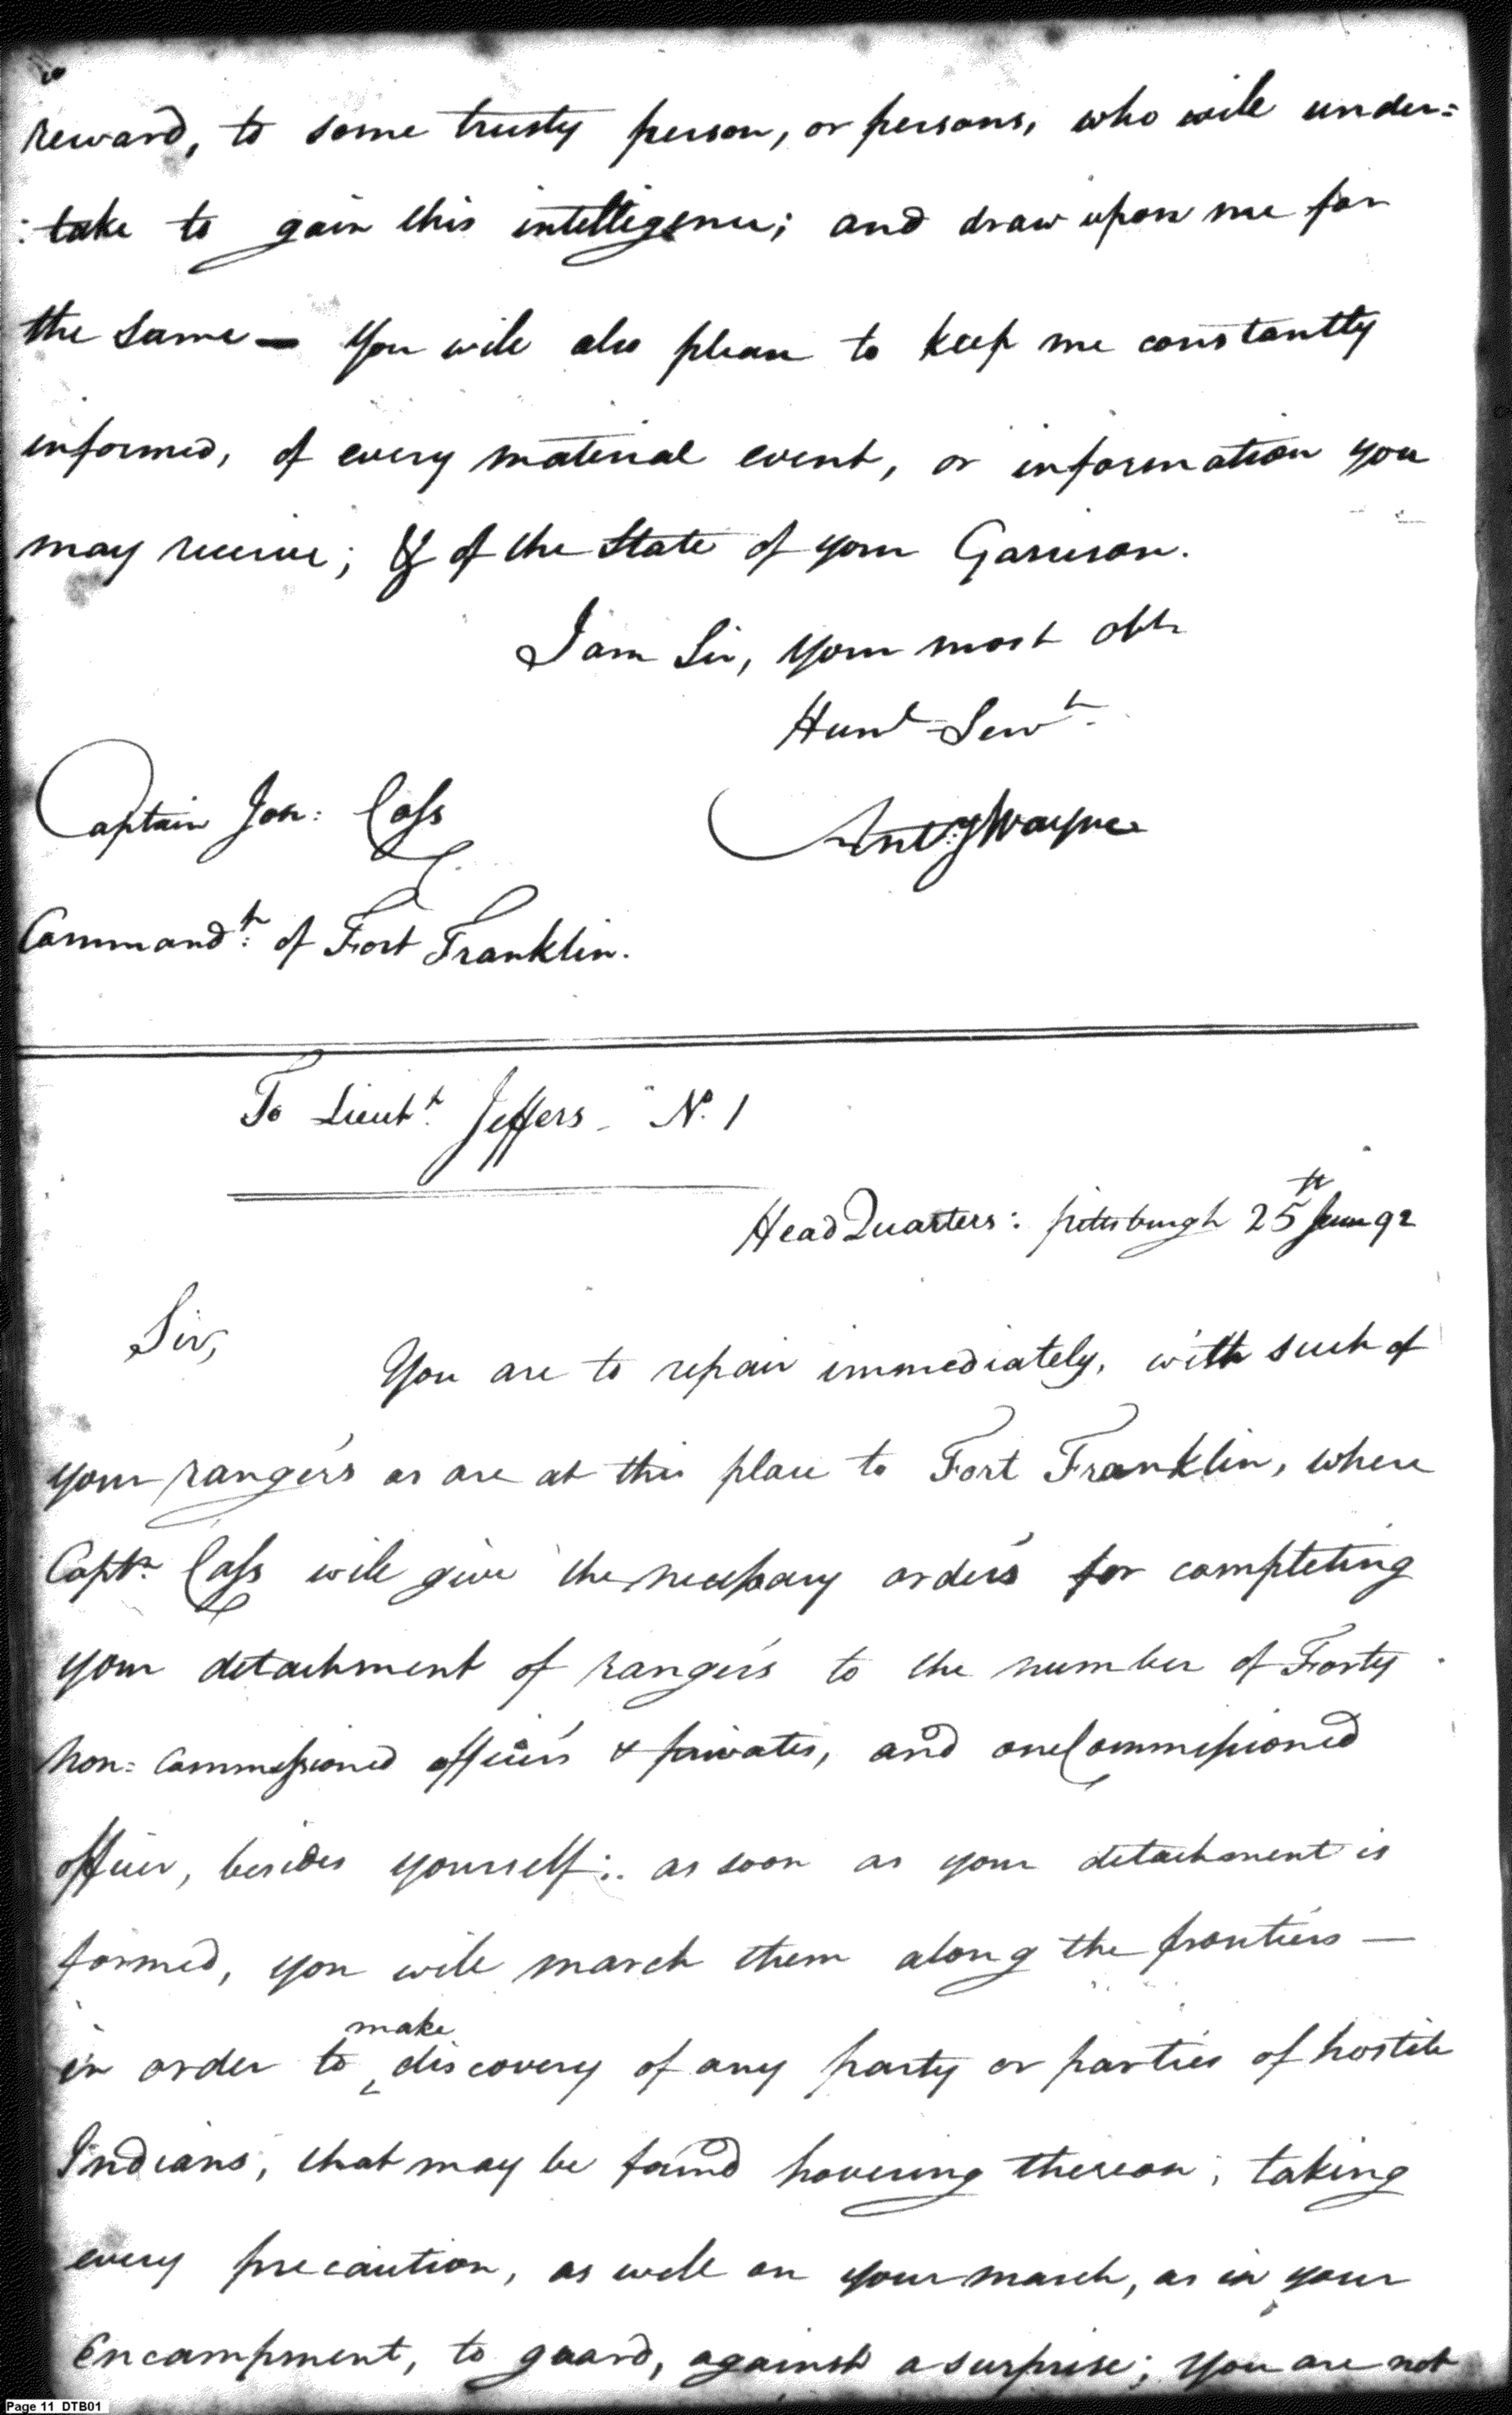 reward, to some trusty person, or persons, who will under=
:take to gain this intelligence; and draw upon me for
the same — You will also please to keep me constantly
informed, of every material event, or information you
may receive; & of the State of your Garrison.
I am Sir, your most obt
Huml Servt
Captain Jon: Cass
Anty Wayne
Commandt: of Fort Franklin.
To Lieutt. Jeffers - No. 1
Head Quarters: pittsburgh 25th June 92
Sir,
You are to repair immediately, with such of
your rangers as are at this place to Fort Franklin, where
Captn. Cass will give the necessary orders for completing
your detachment of rangers to the number of Forty
Non= Commissioned officers & privates, and one Commissioned
officer, besides yourself:. as soon as your detachment is
formed, you will march them along the frontiers —
in order to make discovery of any party or parties of hostile
Indians, that may be found hovering thereon; taking
every precaution, as well on your march, as in your
Encampment, to guard, against a surprise; you are not
Page 11 DTB01